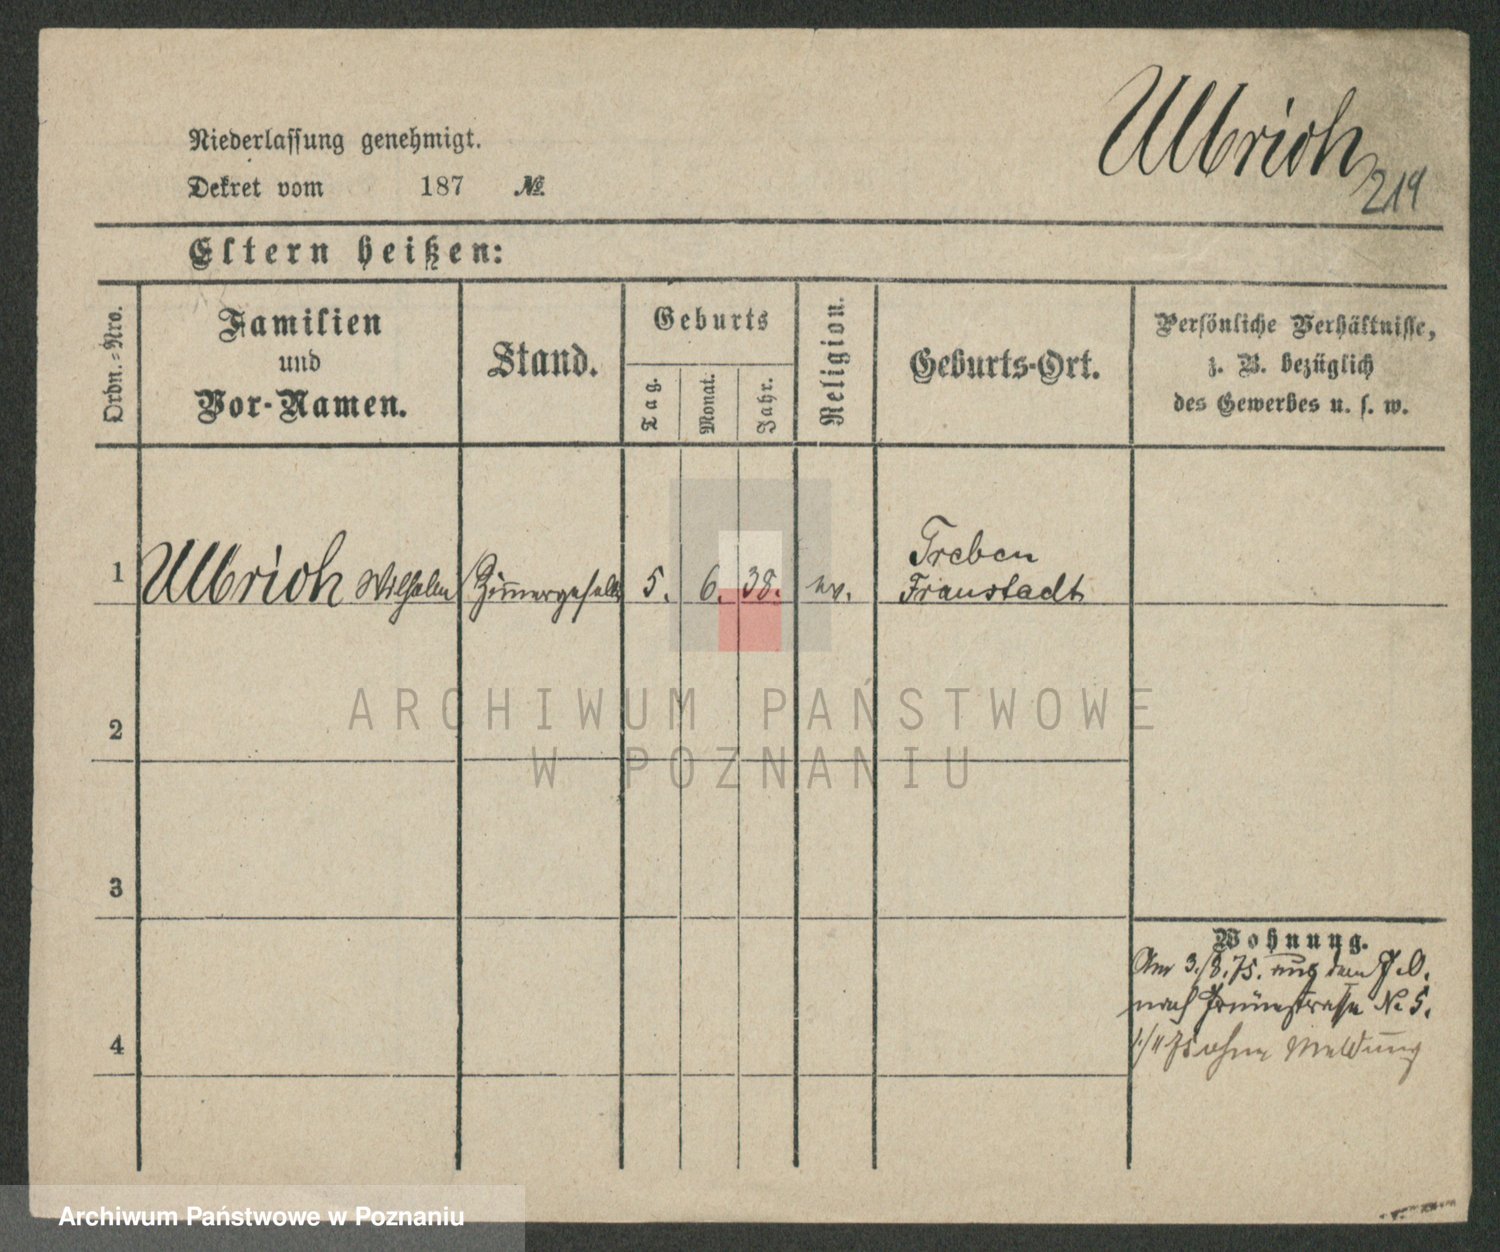 Ulbrich
219
Niederlassung genehmigt.
Dekret vom 187 №
Eltern heißen:
Ordn.-Nro.
Familien und Vor-Namen.
Stand.
Geburts
Tag.
Monat.
Jahr.
Religion.
Geburts-Ort.
Persönliche Verhältnisse,
z. B. bezüglich
des Gewerbes u. s. w.
1 Ulbrich Wilhelm Zimmergeselle 5. 6. 38. ev. Treben
Fraustadt
2
3
4
Wohnung.
Am 3./8.75. aus dem
nach Grünestrasse No 5.
1/11 75 ohne Meldung
ARCHIWUM PAŃSTWOWE
W POZNANIU
Archiwum Państwowe w Poznaniu